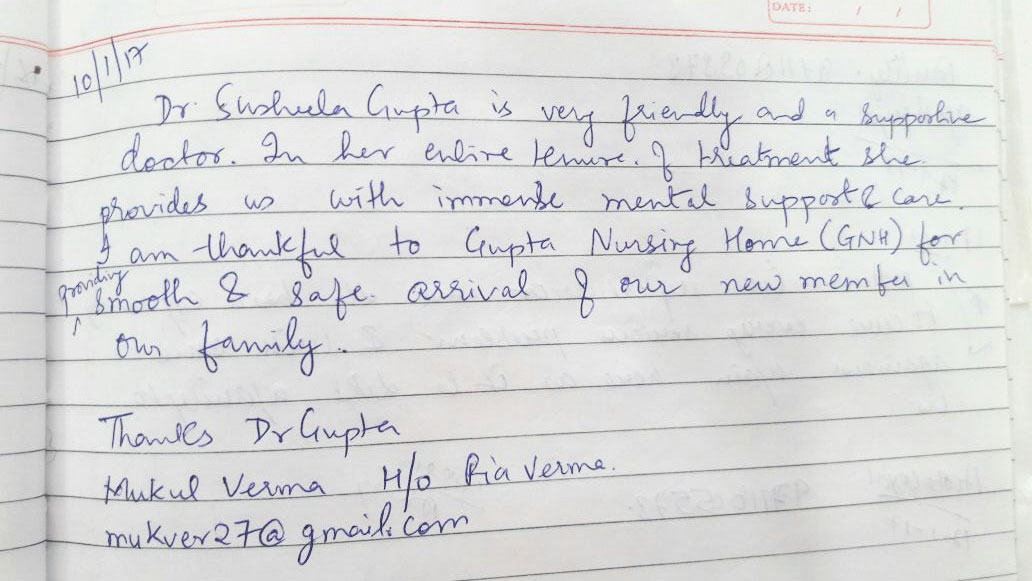 DATE: / /
10/1/17
Dr. Susheela Gupta is very friendly and a supportive
doctor. In her entire tenure. of treatment she.
provides us with immense mental support & care.
I am thankful to Gupta Nursing Home (GNH) for
providing
smooth & safe. arrival of our new member in
our family.
Thanks Dr Gupta
Mukul Verma H/o Ria Verma.
mukver27@gmail.com